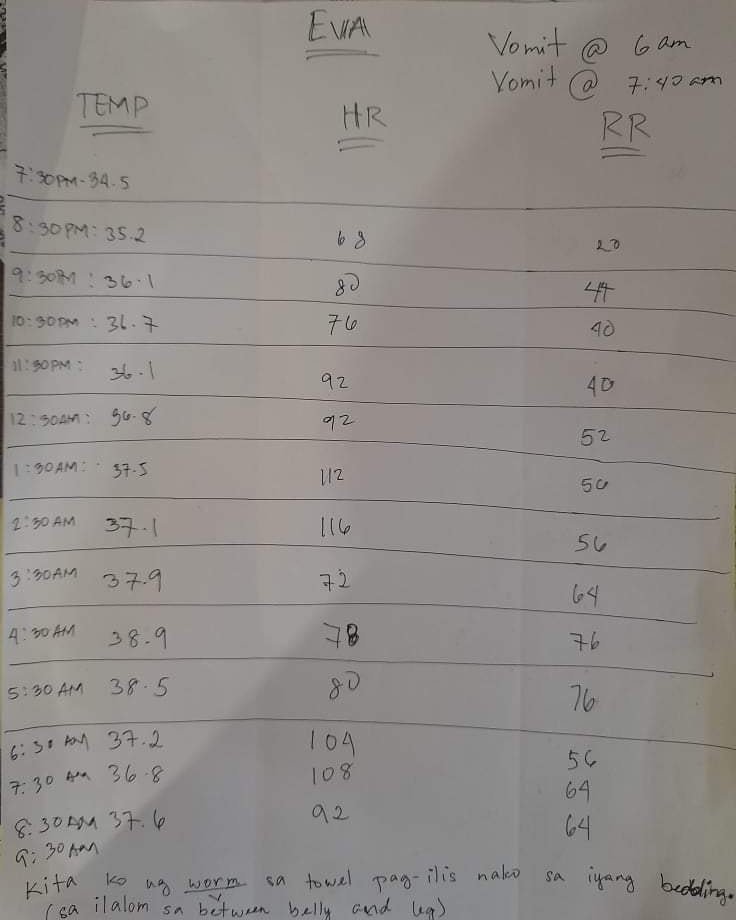 EVIA
Vomit @ 6 am
Vomit @ 7:40 am
TEMP HR RR
7:30PM - 34.5
8:30PM: 35.2 68 20
9:30PM : 36.1 80 44
10:30PM : 36.7 76 40
11:30PM: 36.1 92 40
12:30AM: 36.8 92 52
1:30AM: 37.5 112 56
2:30AM 37.1 116 56
3:30AM 37.9 72 64
4:30AM 38.9 78 76
5:30AM 38.5 80 76
6:30 AM 37.2 104 56
7:30 Am 36.8 108 64
8:30AM 37.6 92 64
9:30AM
Kita ko ug worm sa towel pag-ilis nako sa iyang bedding.
(sa ilalom sa between belly and leg)